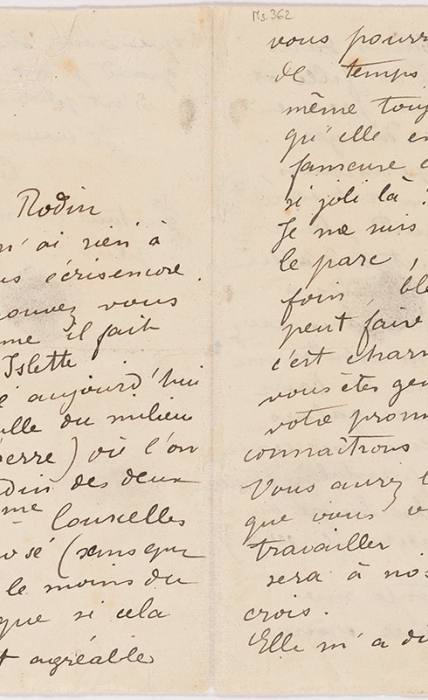 Rodin
n'ai rien à
us écris encore.
ouvez vous
me il fait
Islette
é aujourd'hui
alle du milieu
erre) où l'on
din des deux
me Courcelles
osé (sans que
le moins du
que si cela
t agréable
Ms. 362
vous pourr
de temps
même touj
qu'elle e
fameuse
si joli là
Je me suis
le parc,
foin, blé
peut faire
c'est charm
vous êtes gen
votre prom
connaîtrons
Vous aurez l
que vous v
travailler
sera à nos
crois.
Elle m'a di